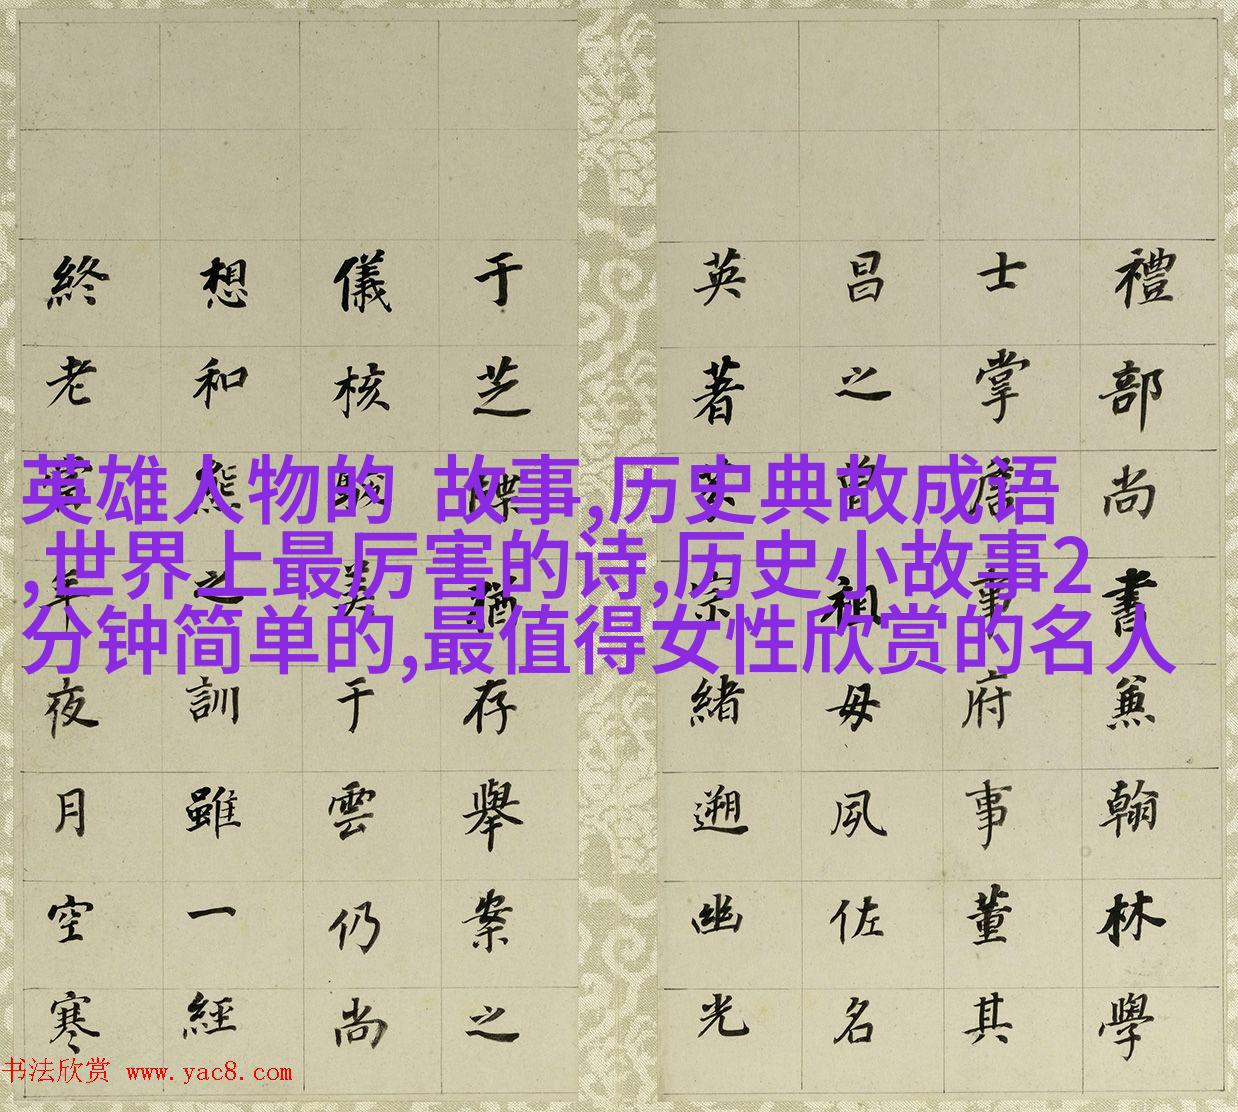 禮部尚書兼翰林學
士掌詹事府事董其
昌之曾祖母夙佐名
英著宗緒遡幽光
于芝牒猶存舉案之
儀核美于雲仍尚
想和熊之訓雖一經
終老年夜月空寒
英雄人物的 故事,历史典故成语
,世界上最厉害的诗,历史小故事2
分钟简单的,最值得女性欣赏的名人
书法欣赏 www.yac8.com